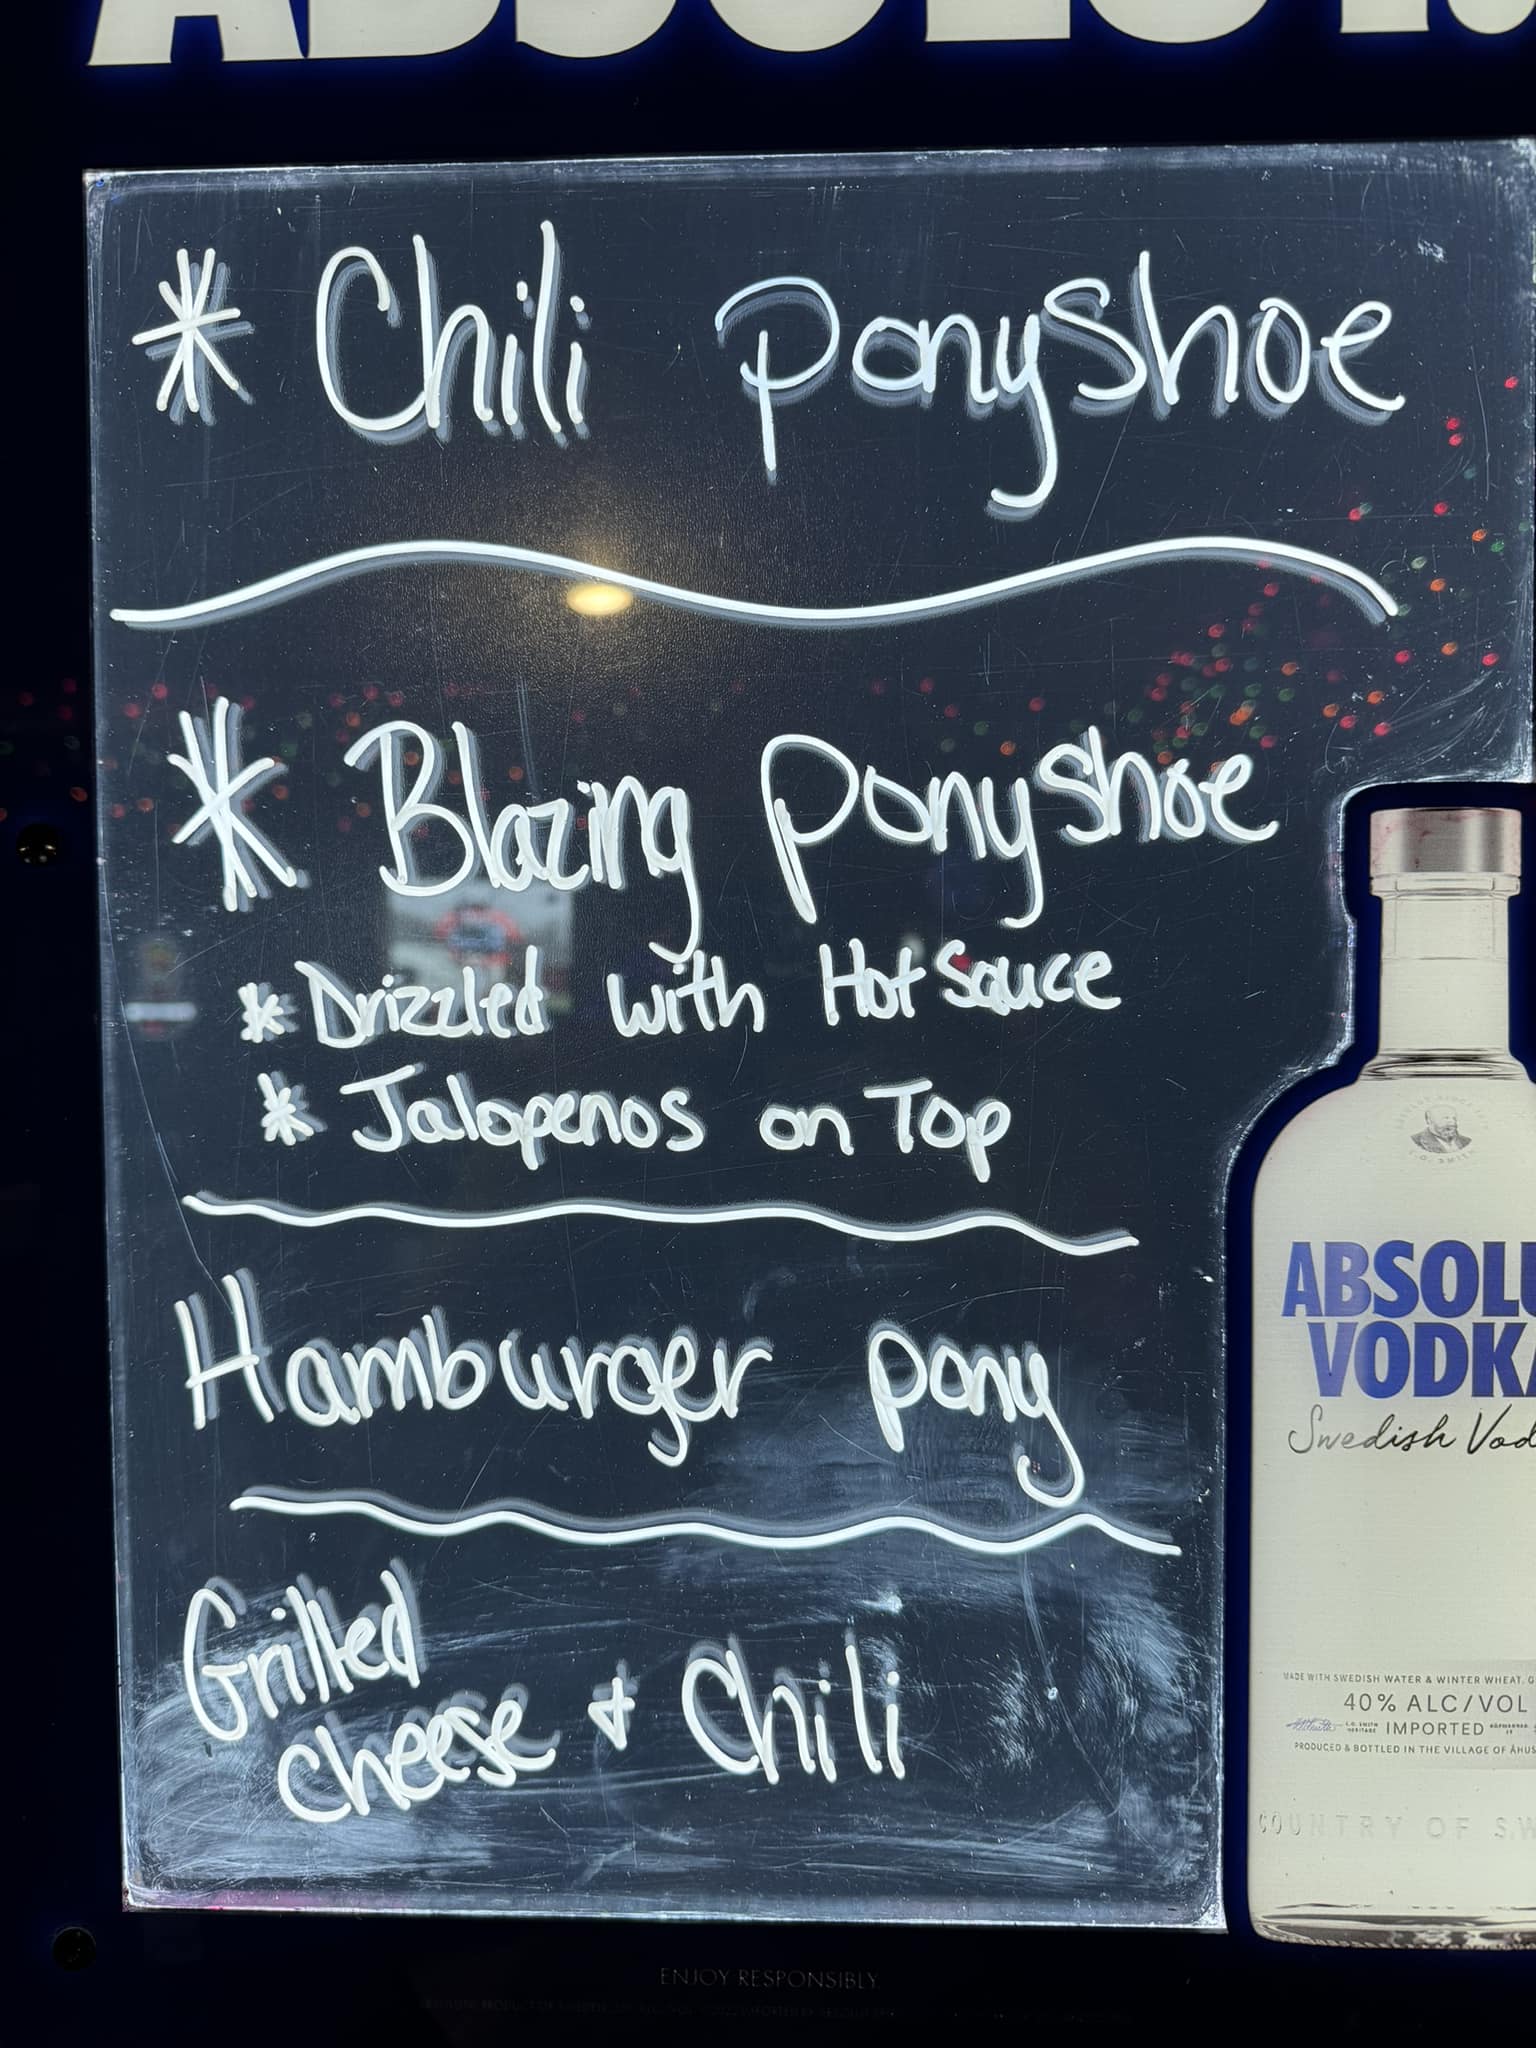 ABSOLUT.
* Chili Ponyshoe
* Blazing Ponyshoe
* Drizzled with Hot Sauce
* Jalopenos on Top
Hamburger pony
Grilled
Cheese + Chili
L.O. SMITH
ABSOLU
VODKA
Swedish Vod
MADE WITH SWEDISH WATER & WINTER WHEAT.
40% ALC/VOL
L.O. SMITH
HERITAGE
IMPORTED
PRODUCED & BOTTLED IN THE VILLAGE OF ÅHUS
COUNTRY OF SW
ENJOY RESPONSIBLY.